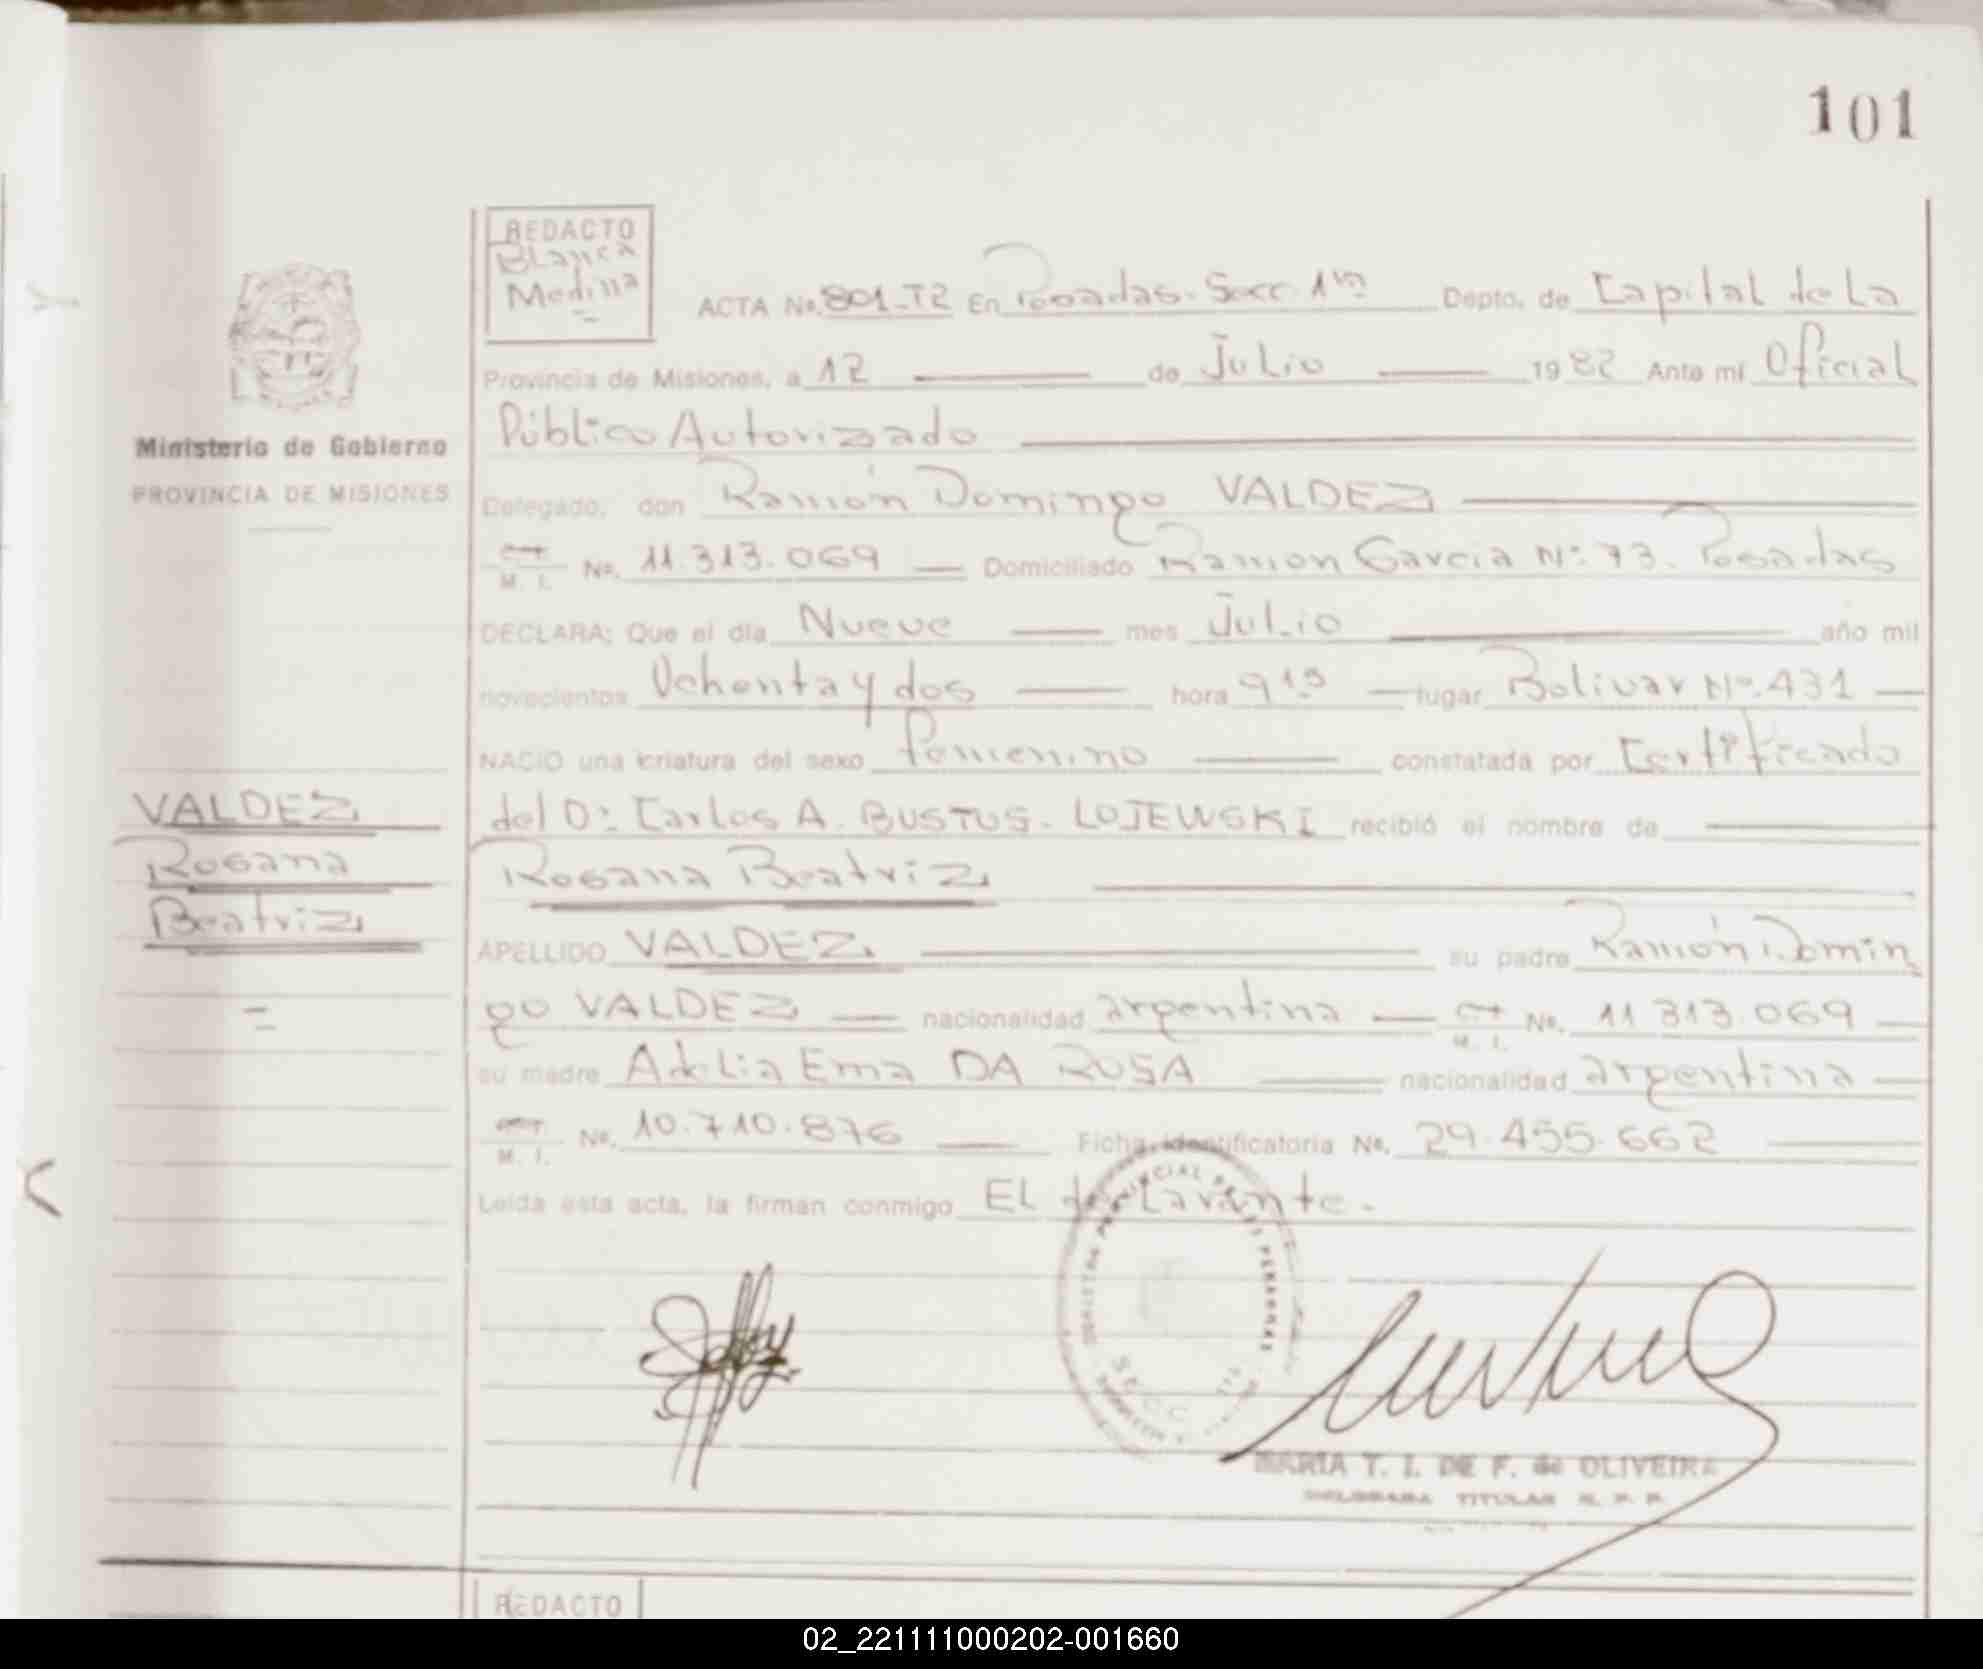 101
REDACTO
Blanca
Medina
ACTA No. 801-T2 En Posadas-Secc. 1ra Depto. de Capital de La
Provincia de Misiones, a 12 de Julio 1982 Ante mí Oficial
Público Autorizado
Ministerio de Gobierno
PROVINCIA DE MISIONES
Delegado, don Ramón Domingo VALDEZ
M. I. No. 11.313.069 Domiciliado Ramon Garcia Nº: 73. Posadas
DECLARA: Que el día Nueve mes Julio año mil
novecientos Ochenta y dos hora 9 15 lugar Bolivar Nº. 431
NACIO una criatura del sexo femenino constatada por Certificado
VALDEZ
Rosana
Beatriz
del Dr. Carlos A. BUSTOS. LOJEWSKI recibió el nombre de
Rosana Beatriz
APELLIDO VALDEZ. su padre Ramón Domin
go VALDEZ nacionalidad argentina M. I. No. 11 313.069
su madre Adelia Ema DA ROSA nacionalidad argentina
M. I. No. 10.710.876 Ficha identificatoria No. 29.455.662
Leída esta acta, la firman conmigo EL declarante.
PROVINCIAL DE LAS PERSONAS
SECC. 1ra
MARIA T. I. DE F. de OLIVEIRA
DELEGADA TITULAR R. P. P.
REDACTO
02_221111000202-001660